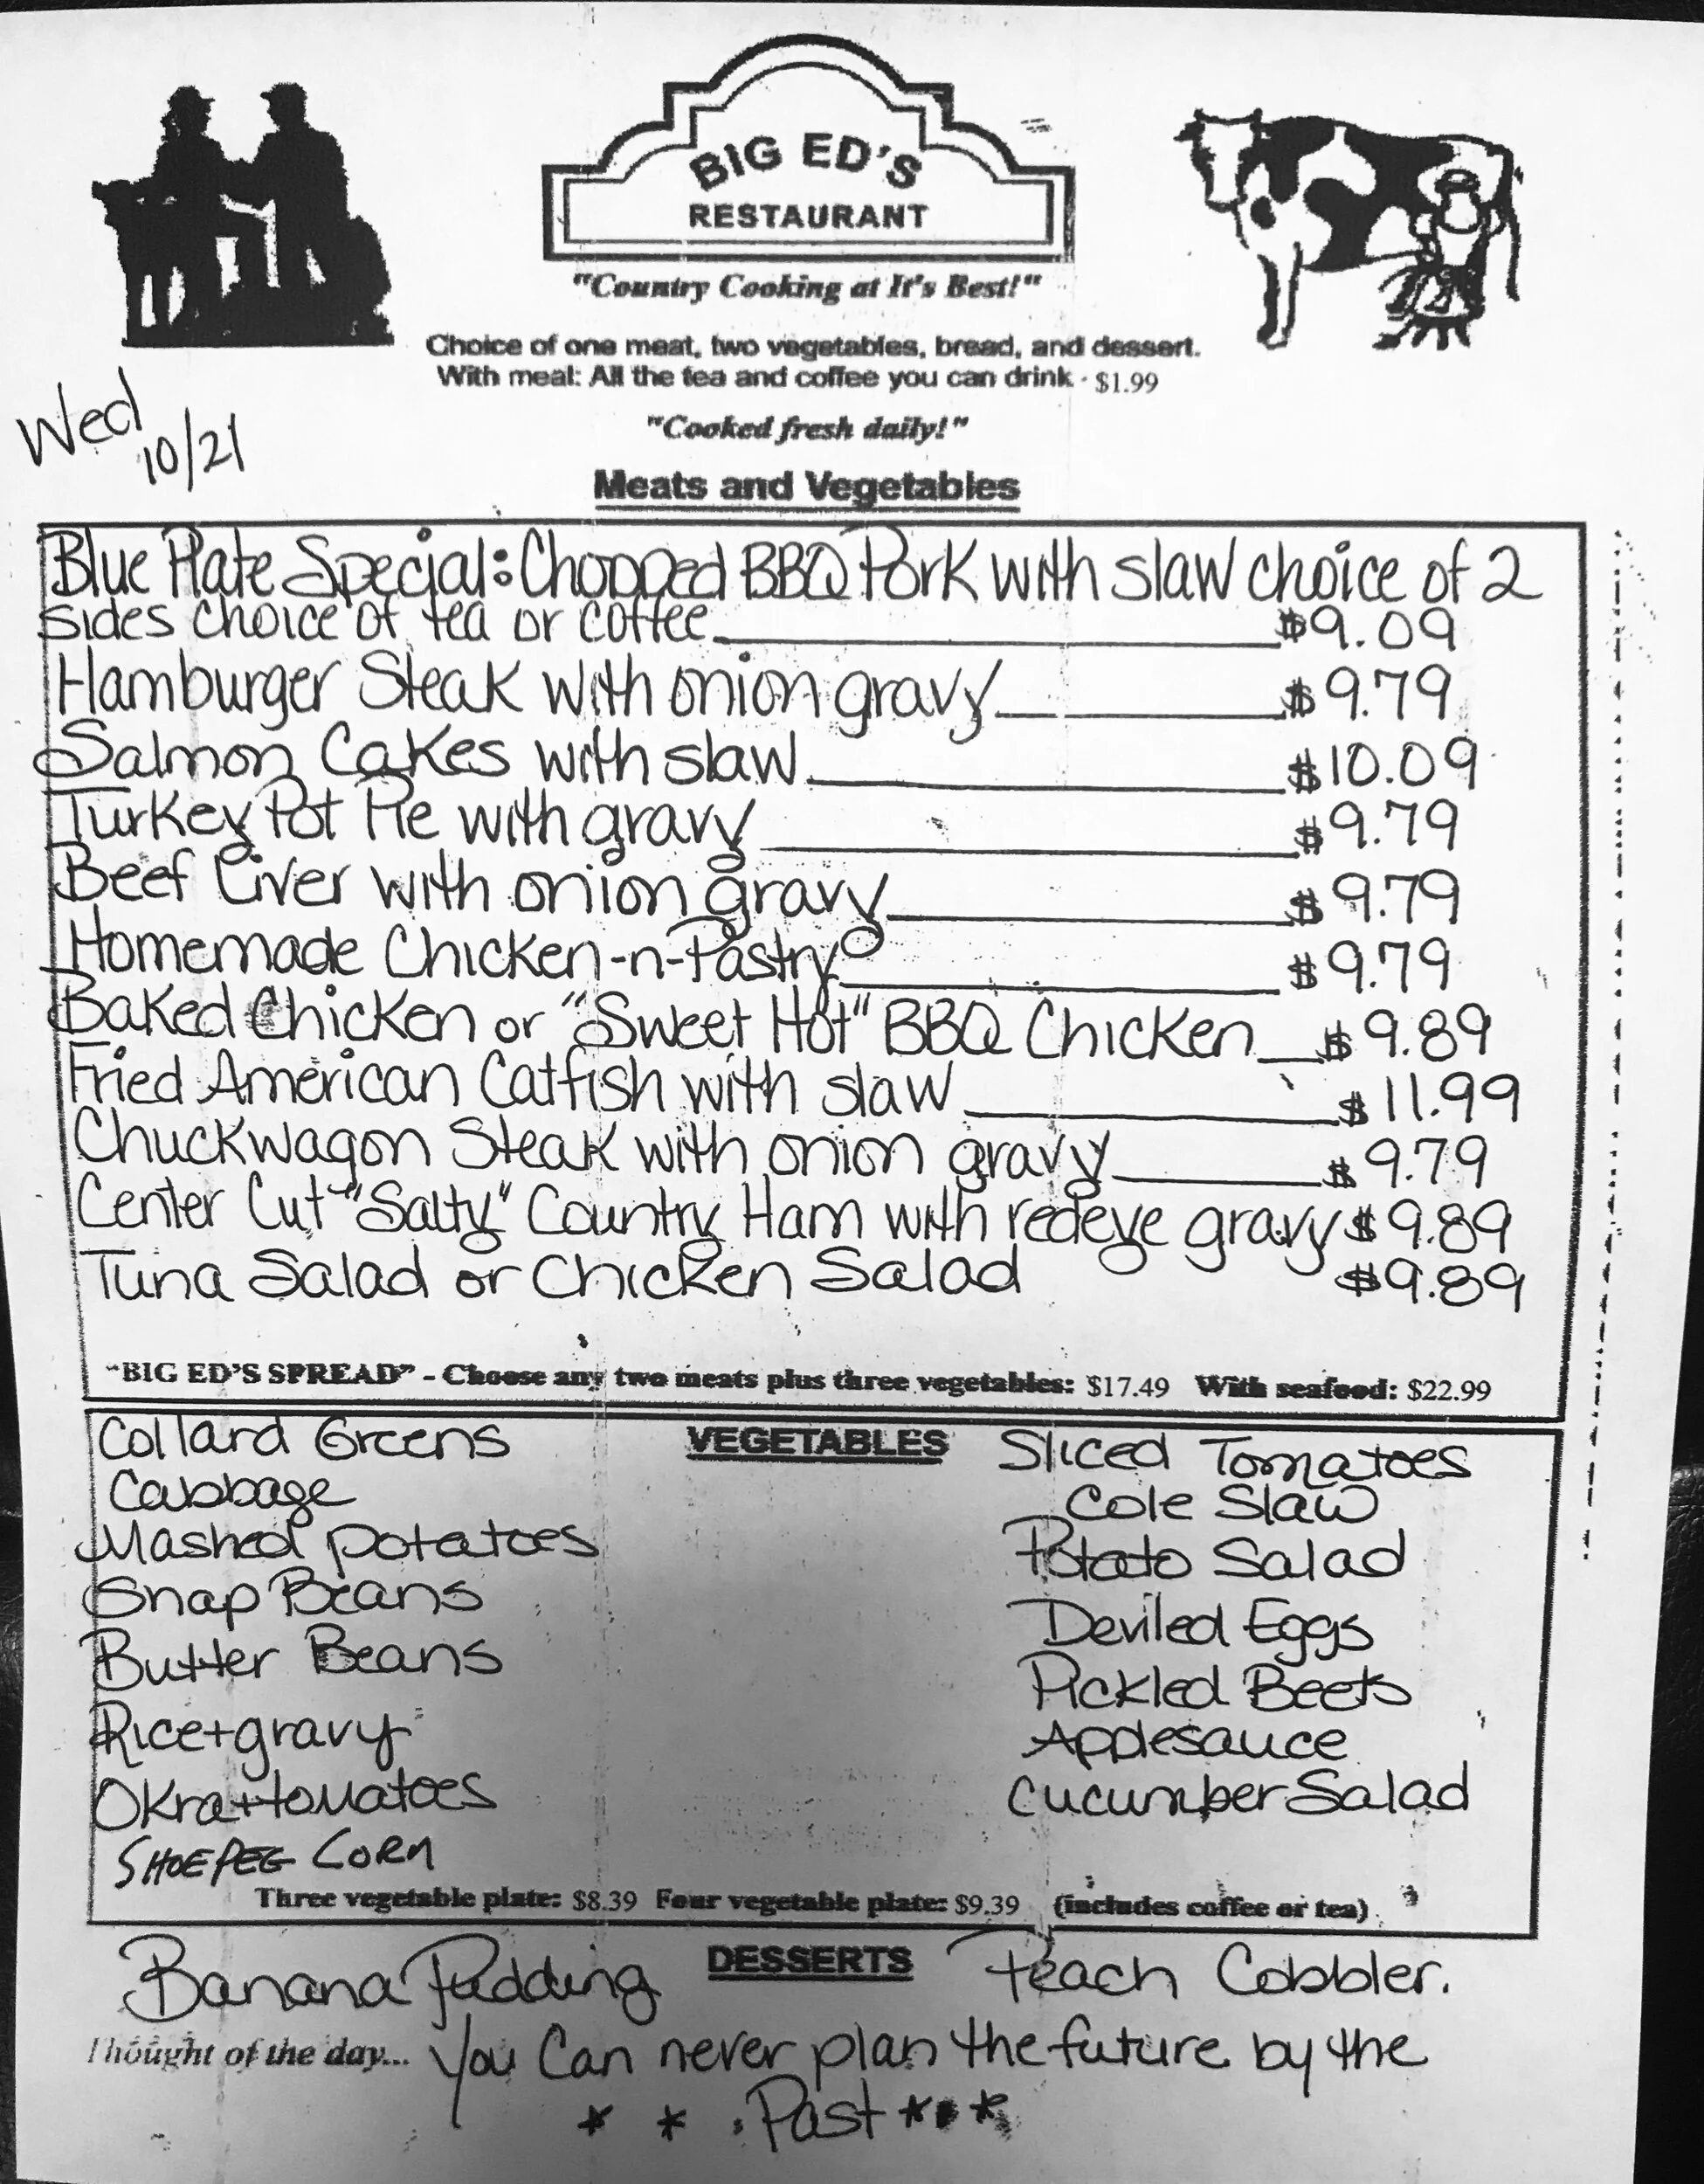 BIG ED'S
RESTAURANT
"Country Cooking at It's Best!"
Choice of one meat, two vegetables, bread, and dessert.
With meal: All the tea and coffee you can drink - $1.99
Wed
10/21
"Cooked fresh daily!"
Meats and Vegetables
Blue Plate Special: Chopped BBQ Pork with slaw choice of 2
sides choice of tea or coffee $9.09
Hamburger Steak with onion gravy $9.79
Salmon Cakes with slaw $10.09
Turkey Pot Pie with gravy $9.79
Beef Liver with onion gravy $9.79
Homemade Chicken-n-Pastry $9.79
Baked Chicken or "Sweet Hot" BBQ Chicken $9.89
Fried American Catfish with slaw $11.99
Chuckwagon Steak with onion gravy $9.79
Center Cut "Salty" Country Ham with redeye gravy $9.89
Tuna Salad or Chicken Salad $9.89
"BIG ED'S SPREAD" - Choose any two meats plus three vegetables: $17.49 With seafood: $22.99
VEGETABLES
Collard Greens
Cabbage
Mashed potatoes
Snap Beans
Butter Beans
Rice+gravy
Okra+tomatoes
SHOEPEG CORN
Sliced Tomatoes
Cole Slaw
Potato Salad
Deviled Eggs
Pickled Beets
Applesauce
Cucumber Salad
Three vegetable plate: $8.39 Four vegetable plate: $9.39 (includes coffee or tea)
DESSERTS
Banana Pudding Peach Cobbler.
Thought of the day... You Can never plan the future by the
* * . Past * * *